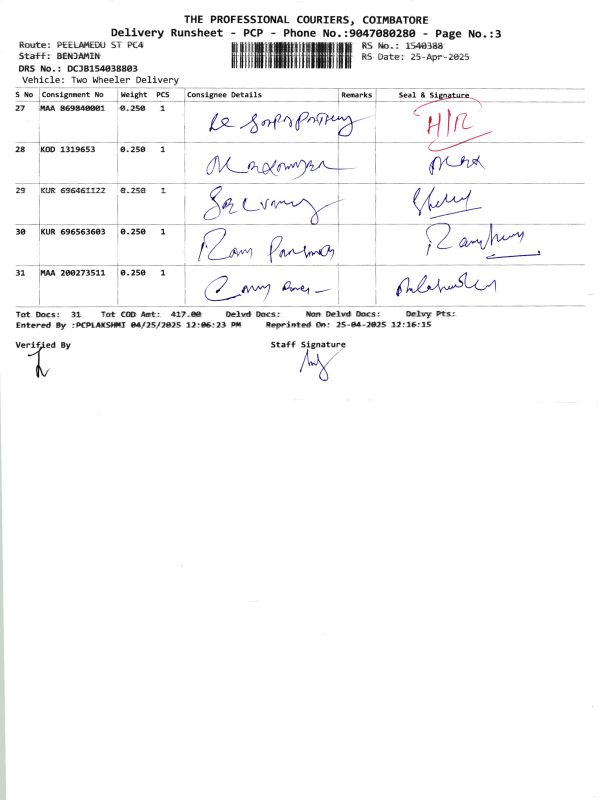 THE PROFESSIONAL COURIERS, COIMBATORE
Delivery Runsheet - PCP - Phone No.:9047080280 - Page No.:3
Route: PEELAMEDU ST PC4
RS No.: 1540388
Staff: BENJAMIN
RS Date: 25-Apr-2025
DRS No.: DCJB154038803
Vehicle: Two Wheeler Delivery
S No Consignment No Weight PCS Consignee Details Remarks Seal & Signature
27 MAA 869840001 0.250 1 H/R
28 KOD 1319653 0.250 1
29 KUR 696461122 0.250 1
30 KUR 696563603 0.250 1
31 MAA 200273511 0.250 1
Tot Docs: 31 Tot COD Amt: 417.00 Delvd Docs: Non Delvd Docs: Delvy Pts:
Entered By :PCPLAKSHMI 04/25/2025 12:06:23 PM Reprinted On: 25-04-2025 12:16:15
Verified By Staff Signature